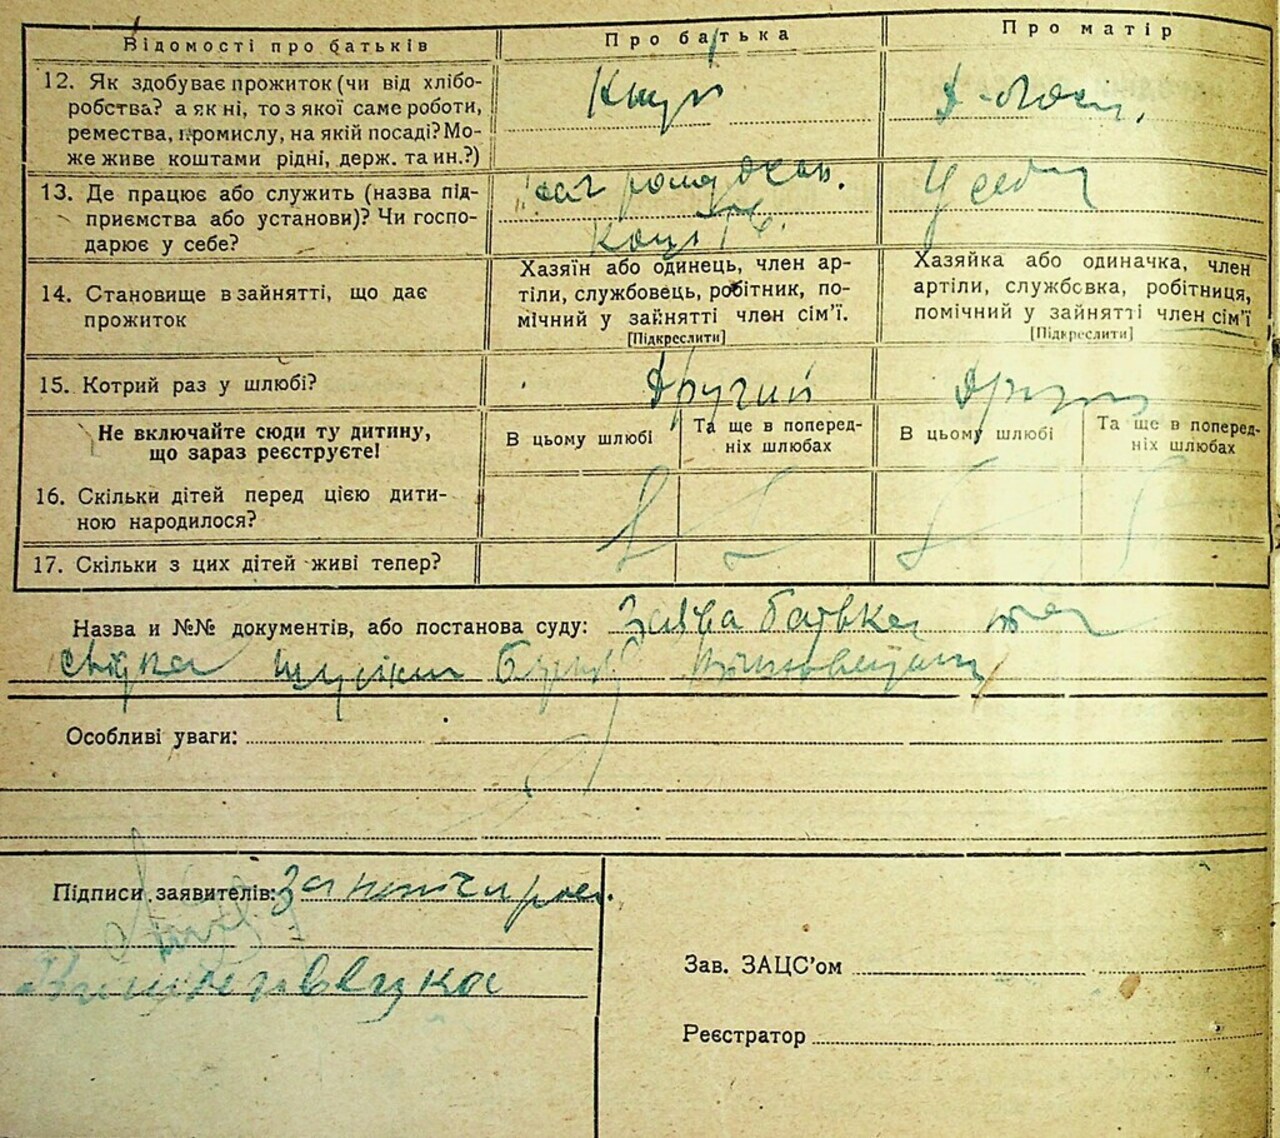 Відомості про батьків
Про батька
Про матір
12. Як здобуває прожиток (чи від хлібо-
робства? а як ні, то з якої саме роботи,
ремества, промислу, на якій посаді? Мо-
же живе коштами рідні, держ. та ин.?)
13. Де працює або служить (назва під-
приємства або установи)? Чи госпо-
дарює у себе?
14. Становище в зайнятті, що дає
прожиток
Хазяїн або одинець, член ар-
тіли, службовець, робітник, по-
мічний у зайнятті член сім'ї.
[Підкреслити]
Хазяйка або одиначка, член
артіли, службовка, робітниця,
помічний у зайнятті член сім'ї
[Підкреслити]
15. Котрий раз у шлюбі?
Другий
Не включайте сюди ту дитину,
що зараз реєструєте!
В цьому шлюбі
Та ще в поперед-
ніх шлюбах
В цьому шлюбі
Та ще в поперед-
ніх шлюбах
16. Скільки дітей перед цією дити-
ною народилося?
17. Скільки з цих дітей живі тепер?
Назва и №№ документів, або постанова суду: Заява батька та
свідка
Особливі уваги:
Підписи заявителів: За
Зав. ЗАЦС'ом
Реєстратор